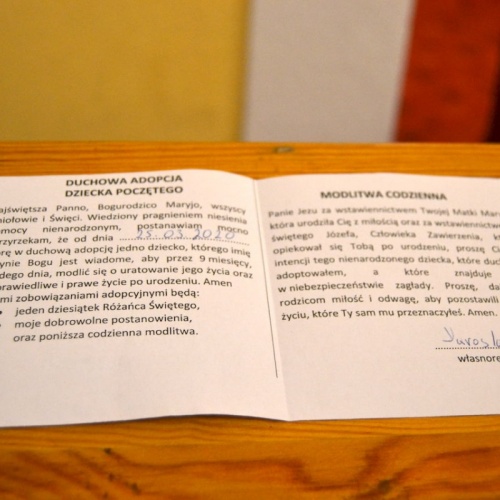 DUCHOWA ADOPCJA
DZIECKA POCZĘTEGO
ajświętsza Panno, Bogurodzico Maryjo, wszyscy
niołowie i Święci. Wiedziony pragnieniem niesienia
omocy nienarodzonym, postanawiam mocno
rzyrzekam, że od dnia 25.03.2020
orę w duchową adopcję jedno dziecko, którego imię
ynie Bogu jest wiadome, aby przez 9 miesięcy,
żdego dnia, modlić się o uratowanie jego życia oraz
prawiedliwe i prawe życie po urodzeniu. Amen
mi zobowiązaniami adopcyjnymi będą:
jeden dziesiątek Różańca Świętego,
moje dobrowolne postanowienia,
oraz poniższa codzienna modlitwa.
MODLITWA CODZIENNA
Panie Jezu za wstawiennictwem Twojej Matki Mar
która urodziła Cię z miłością oraz za wstawiennictw
świętego Józefa, Człowieka Zawierzenia, kt
opiekował się Tobą po urodzeniu, proszę Ci
intencji tego nienarodzonego dziecka, które duc
adoptowałem, a które znajduje
w niebezpieczeństwie zagłady. Proszę, da
rodzicom miłość i odwagę, aby pozostawili
życiu, które Ty sam mu przeznaczyłeś. Amen.
własnorę